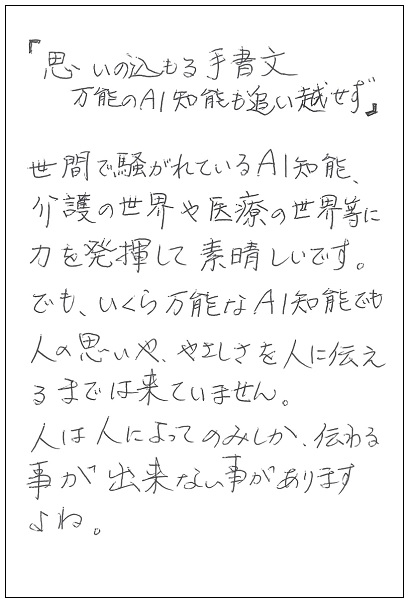 『思いの込もる手書文
万能のAI知能も追い越せず』
世間で騒がれているAI知能、
介護の世界や医療の世界等に
力を発揮して素晴しいです。
でも、いくら万能なAI知能でも
人の思いや、やさしさを人に伝え
るまでは来ていません。
人は人によってのみしか、伝わる
事が出来ない事があります
よね。